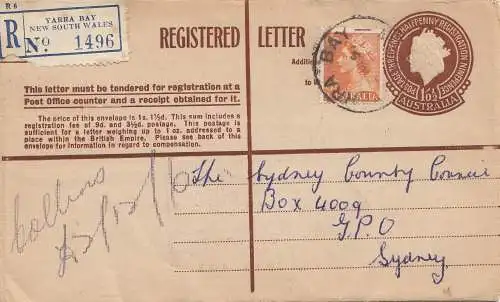 R 6
R
YARRA BAY
NEW SOUTH WALES
No 1496
REGISTERED LETTER
This letter must be tendered for registration at a
Post Office counter and a receipt obtained for it.
The price of this envelope is 1s. 1½d. This sum includes a
registration fee of 9d. and 3½d. postage. This postage is
sufficient for a letter weighing up to 1 oz. addressed to a
place within the British Empire. Please see back of this
envelope for information in regard to compensation.
Addition
to
RA BAY
AUSTRALIA
POSTAGE THREEPENCE HALFPENNY REGISTRATION NINEPENCE
1/0½
AUSTRALIA
Collins
The Sydney County Council
Box 4009
G.P.O
Sydney